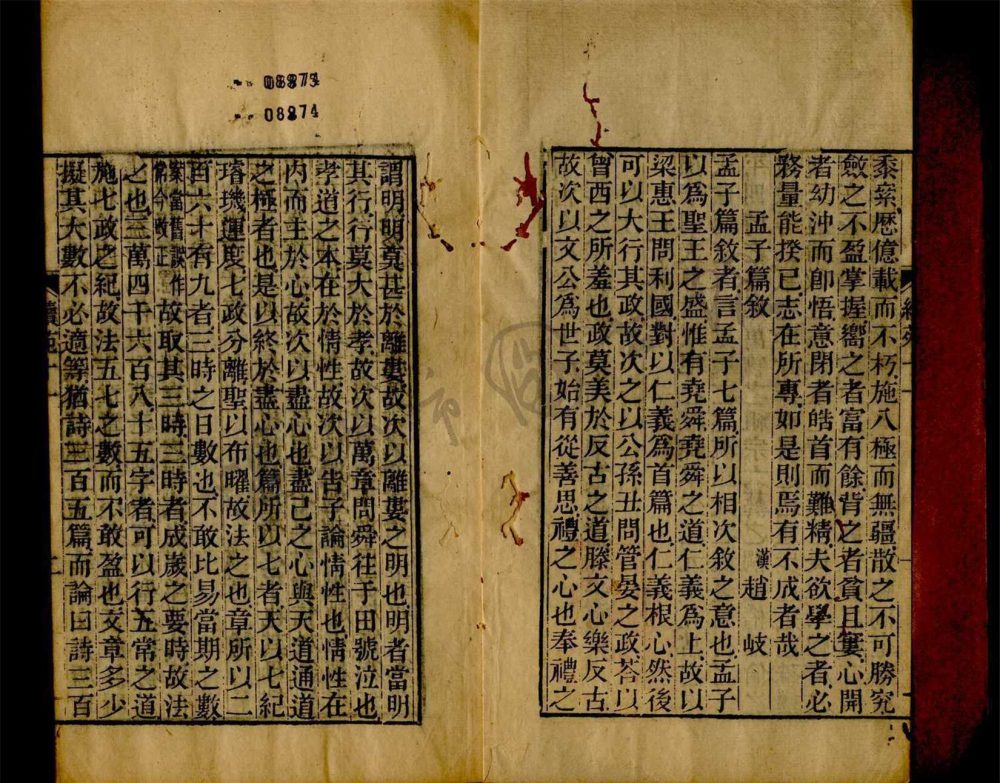 08873
08874
黍絫歷億載而不朽施八極而無疆散之不可勝究
斂之不盈掌握嚮之者富有餘背之者貧且寠心開
者幼沖而卽悟意閉者皓首而難精夫欲學之者必
務量能揆己志在所專如是則焉有不成者哉
孟子篇敘
漢趙岐
孟子篇敘者言孟子七篇所以相次敘之意也孟子
以爲聖王之盛惟有堯舜堯舜之道仁義爲上故以
梁惠王問利國對以仁義爲首篇也仁義根心然後
可以大行其政故次之以公孫丑問管晏之政荅以
曾西之所羞也政莫美於反古之道滕文心樂反古
故次以文公爲世子始有從善思禮之心也奉禮之
謂明明莫甚於離婁故次以離婁之明也明者當明
其行行莫大於孝故次以萬章問舜往于田號泣也
孝道之本在於情性故次以告子論情性也情性在
內而主於心故次以盡心也盡己之心與天道通道
之極者也是以終於盡心也篇所以七者天以七紀
璿璣運度七政分離聖以布曜故法之也章所以二
百六十有九者三時之日數也不敢比易當期之數
案當舊誤作
常今改正
故取其三時三時者成歲之要時故法
之也三萬四千六百八十五字者可以行五常之道
施七政之紀故法五七之數而不敢盈也文章多少
擬其大數不必適等猶詩三百五篇而論曰詩三百